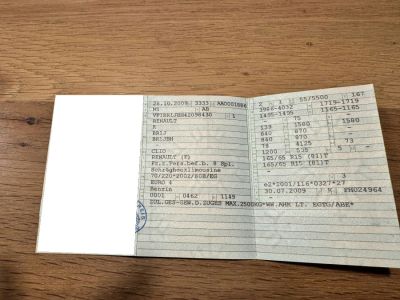 28.10.2009 3333
M1 AB
VF1BR1JBH42098430 1
RENAULT
R
BR1J
BR1JBH
-
CLIO
RENAULT (F)
Fz.z.Pers.bef.b. 8 Spl.
Schräghecklimousine
70/220*2002/80B/EG
EURO 4
Benzin
0001 0462 1149
ZUL.GES-GEW.D.ZUGES MAX.2500KG*WW.AHK LT. EGTG/ABE*
2 1 55/5500 167
3986-4032 1719-1719
1495-1495 1165-1165
- 75 -
133 1580 1580
840 870 -
840 870 -
78 4125 73
1200 535 5
165/65 R15 (81)T
165/65 R15 (81)T
- 3
e2*2001/116*0327*27
30.07.2009 K